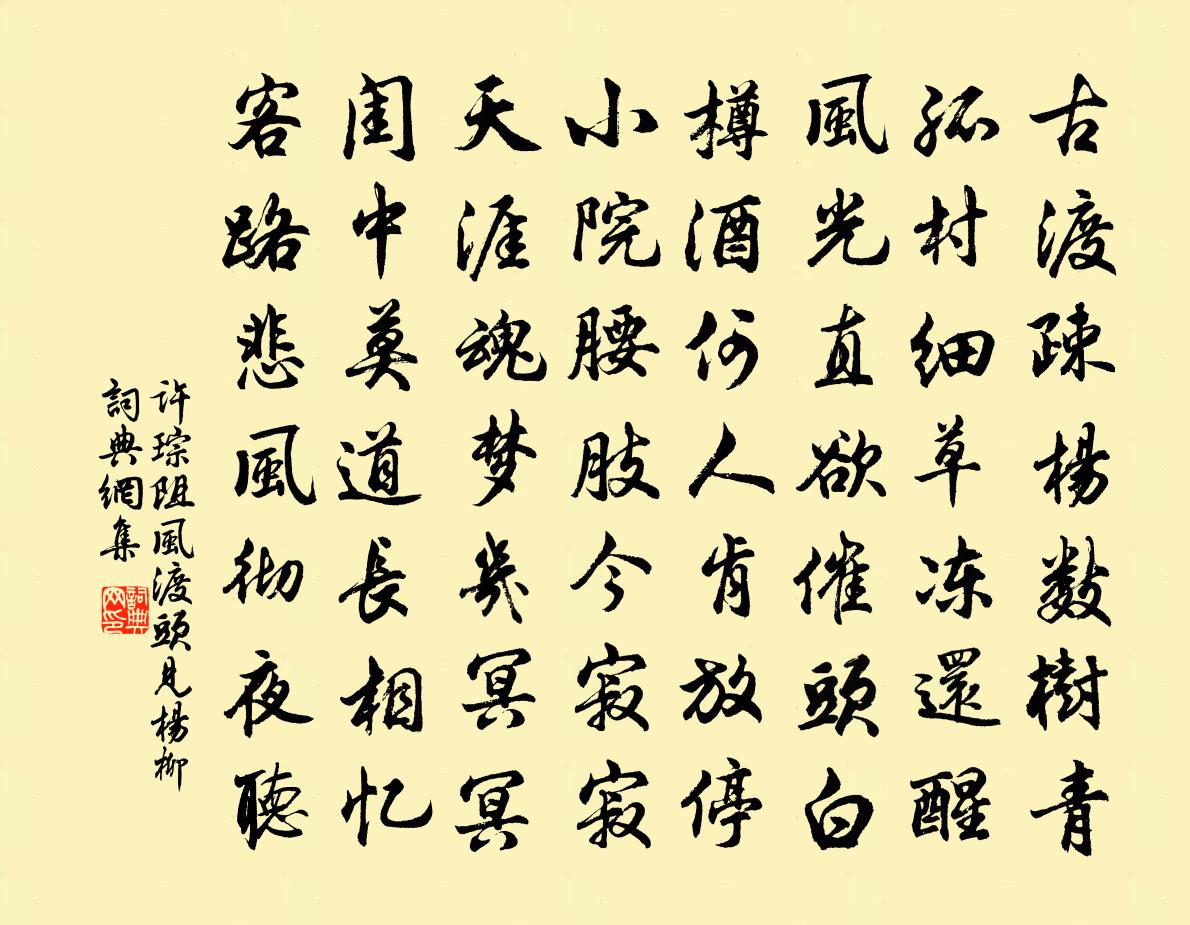 古渡疎楊数樹青
孤村細草冻還醒
風光直欲催頭白
樽酒何人肯放停
小院腰肢今寂寂
天涯魂梦幾冥冥
閨中莫道長相忆
客路悲風彻夜聽
许琮阻風渡頭見楊柳
詞典網集
詞典网印